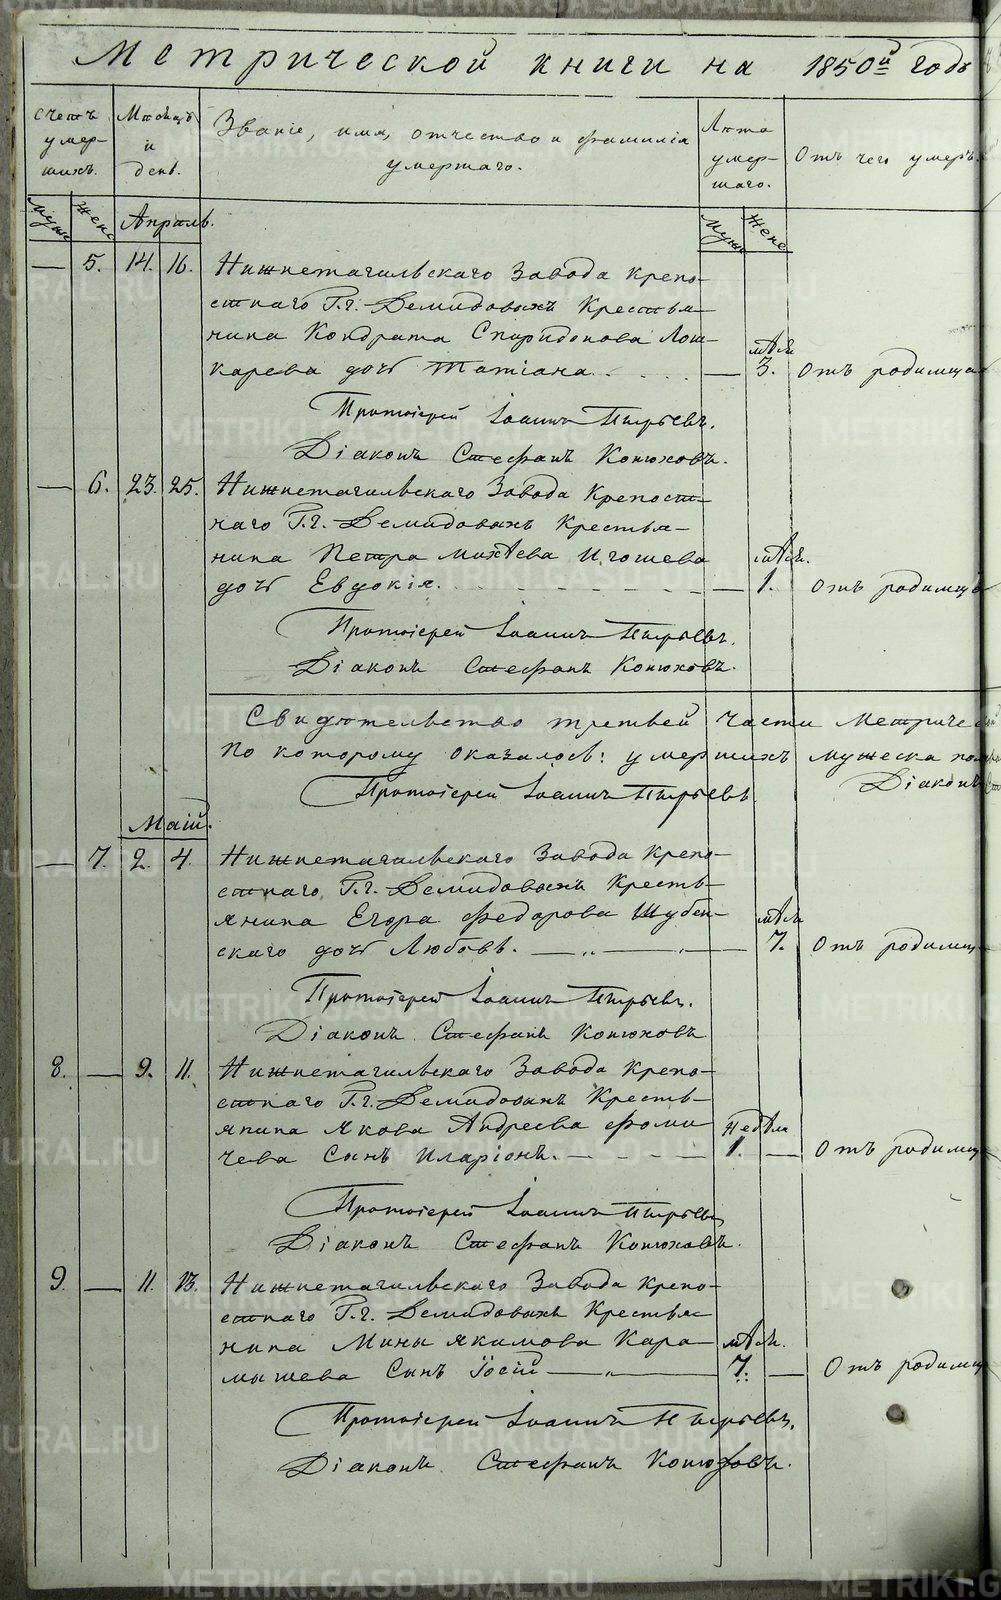 Метрической книги на 1850й годъ
Счетъ умер- шихъ.
Месяцъ и день.
Званіе, имя, отчество и фамилія умершаго.
Лета умер- шаго.
Отъ чего умеръ.
Муж. Жене
Апрель.
Муж. Жене
— 5. 14. 16. Нижнетагильскаго Завода крепо-
стнаго Г.г. Демидовыхъ Крестья-
нина Кондрата Спиридонова Лош-
карева дочь Татіана. — мѣся. 3. Отъ родимца
Протоіерей Іоаннъ Пырьевъ.
Діаконъ Стефанъ Конюховъ.
— 6. 23. 25. Нижнетагильскаго Завода Крепост-
наго Г.г. Демидовыхъ Крестья-
нина Петра Михѣева Игошева
дочь Евдокія. — мѣся. 1. Отъ родимца
Протоіерей Іоаннъ Пырьевъ.
Діаконъ Стефанъ Конюховъ.
Свидѣтельство третьей части Метриче
по которому оказалось: умершихъ мужеска пола
Протоіерей Іоаннъ Пырьевъ
Діаконъ
Маій.
— 7. 2. 4. Нижнетагильскаго Завода Крепо-
стнаго Г.г. Демидовыхъ Кресть-
янина Егора Федорова Шубен-
скаго дочь Любовь. — „ — „ — мѣся 7. Отъ родимца
Протоіерей Іоаннъ Пырьевъ.
Діаконъ Стефанъ Конюховъ
8. — 9. 11. Нижнетагильскаго Завода Крепо-
стнаго Г.г. Демидовыхъ Кресть-
янина Якова Андреева Фоми
чева Сынъ Иларіонъ. — недѣля 1. — Отъ родимца
Протоіерей Іоаннъ Пырьевъ
Діаконъ Стефанъ Конюховъ.
9. — 11. 13. Нижнетагильскаго Завода Крепо-
стнаго Г.г. Демидовыхъ Крестья-
нина Мины Якимова Кара-
мышева Сынъ Іосій — „ — мѣся. 7. — Отъ родимца
Протоіерей Іоаннъ Пырьевъ.
Діаконъ Стефанъ Конюховъ.
METRIKI.GASO-URAL.RU